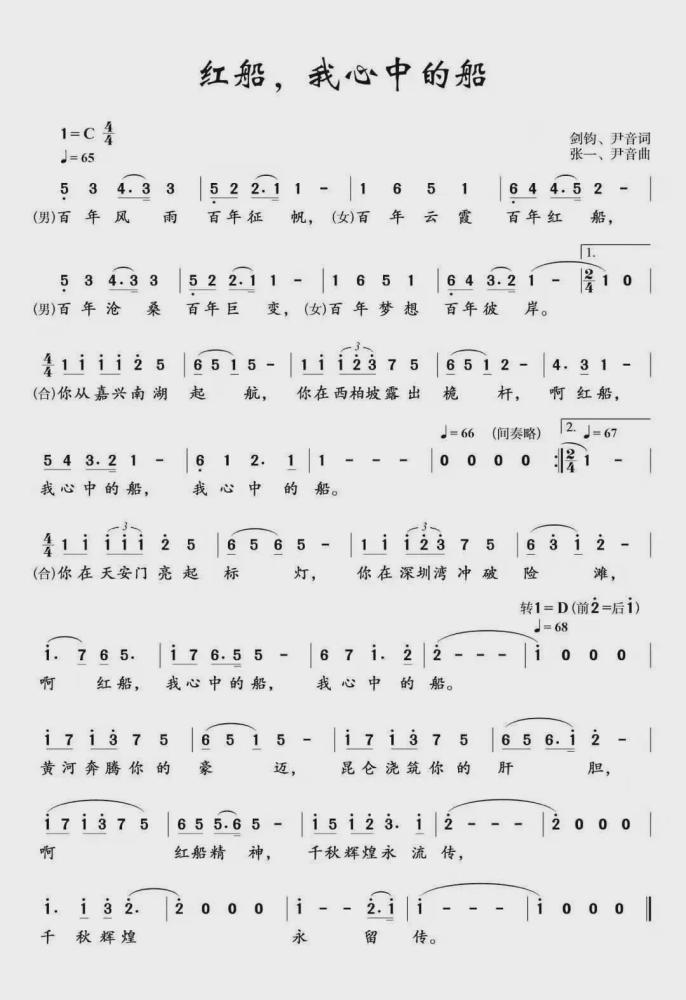 红船，我心中的船
1=C 4/4
♩=65
剑钧、尹音词
张一、尹音曲
5 3 4. 3 3 | 5 2 2. 1 1 - | 1 6 5 1 | 6 4 4. 5 2 - |
(男)百年风雨 百年征帆，(女)百年云霞 百年红船，
1.
5 3 4. 3 3 | 5 2 2. 1 1 - | 1 6 5 1 | 6 4 3. 2 1 - | 2/4 1 0
(男)百年沧桑 百年巨变，(女)百年梦想 百年彼岸。
4/4 1 1 1 1 2 5 | 6 5 1 5 - | 1 1 1 2 3 7 5 | 6 5 1 2 - | 4. 3 1 - |
(合)你从嘉兴南湖起航，你在西柏坡露出桅杆，啊红船，
♩=66 (间奏略) 2. ♩=67
5 4 3. 2 1 - | 6 1 2. 1 | 1 - - - | 0 0 0 0 :| 2/4 1 - |
我心中的船，我心中的船。
4/4 1 1 1 1 1 2 5 | 6 5 6 5 - | 1 1 1 2 3 7 5 | 6 5 1 2 - |
(合)你在天安门亮起标灯，你在深圳湾冲破险滩，
转1=D(前2=后1)
♩=68
1. 7 6 5. | 1 7 6. 5 5 - | 6 7 1. 2 | 2 - - - | 1 0 0 0 |
啊红船，我心中的船，我心中的船。
1 7 1 3 7 5 | 6 5 1 5 - | 1 7 1 3 7 5 | 6 5 6. 1 2 - |
黄河奔腾你的豪迈，昆仑浇筑你的肝胆，
1 7 1 3 7 5 | 6 5 5. 6 5 - | 1 5 1 2 3. 1 | 2 - - - | 2 0 0 0 |
啊 红船精神，千秋辉煌永流传，
1. 1 3 2. | 2 0 0 0 | 1 - - 2. 1 | 1 - - - | 1 0 0 0 ‖
千秋辉煌 永留传。